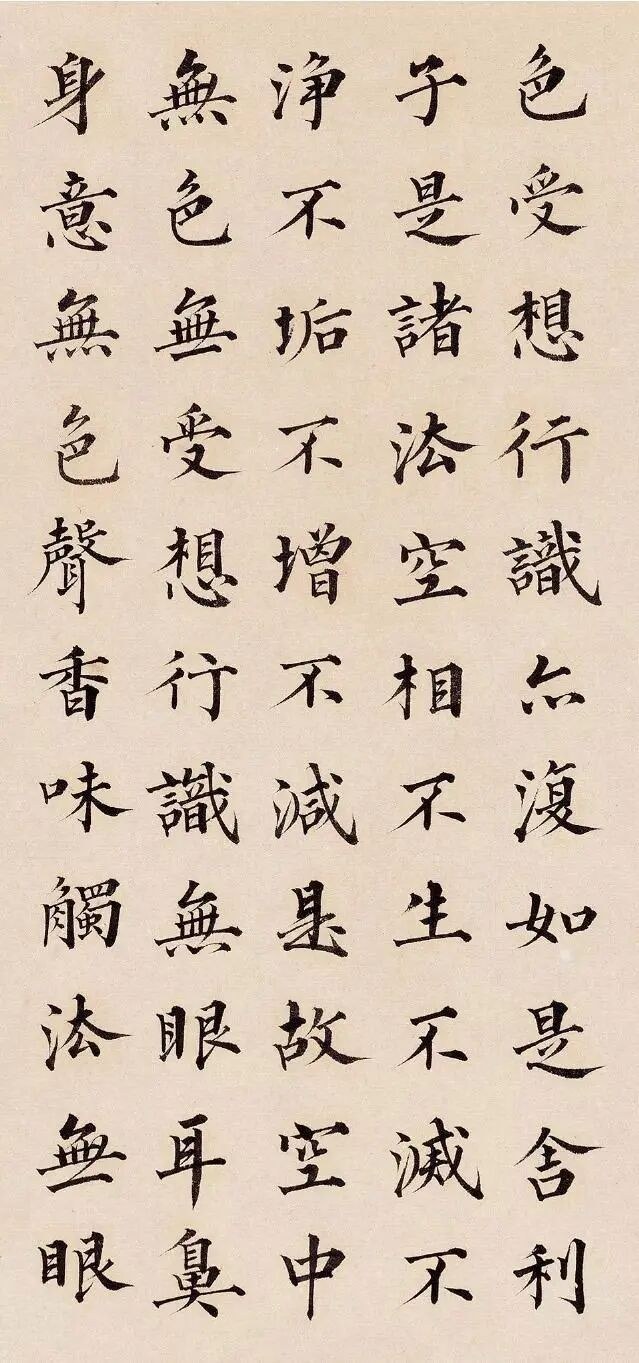 色受想行識亦復如是舍利
子是諸法空相不生不滅不
淨不垢不增不減是故空中
無色無受想行識無眼耳鼻
身意無色聲香味觸法無眼